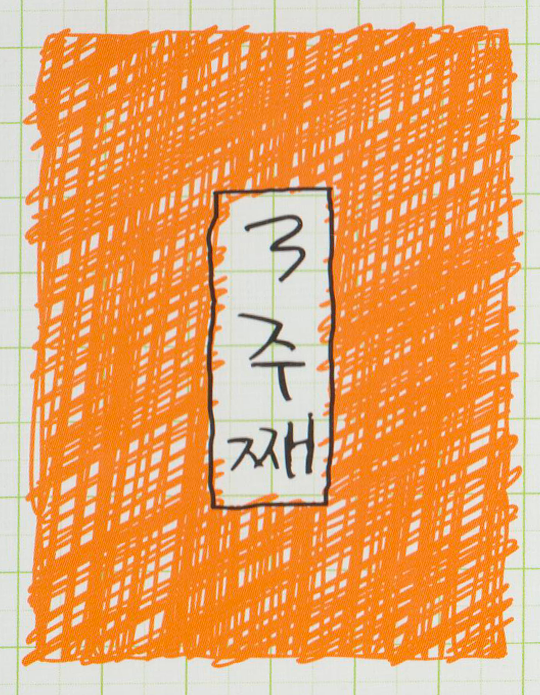 3
주
째